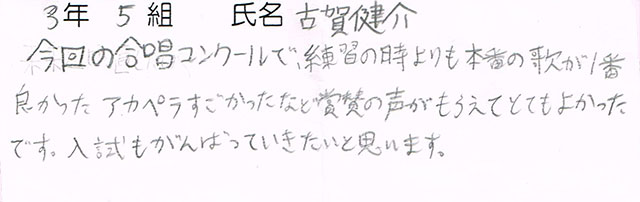 3年 5組 氏名 古賀健介
今回の合唱コンクールで、練習の時よりも本番の歌が1番
良かった アカペラすごかったなど賞賛の声がもらえてとてもよかった
です。入試もがんばっていきたいと思います。